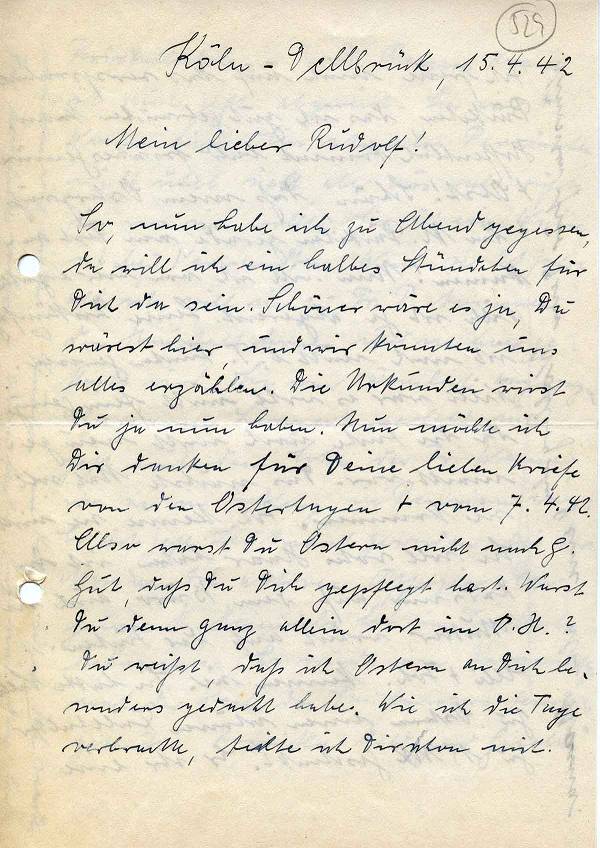 529
Köln - Dellbrück, 15.4.42
Mein lieber Rudolf!
So, nun habe ich zu Abend gegessen,
da will ich ein halbes Stündchen für
Dich da sein. Schöner wäre es ja, Du
wärest hier, und wir könnten uns
alles erzählen. Die Urkunden wirst
Du ja nun haben. Nun möchte ich
Dir danken für Deine lieben Briefe
von den Ostertagen + vom 7.4.42.
Also warst Du Ostern nicht nach G.
Gut, daß Du Dich gepflegt hast. Warst
Du denn ganz allein dort im O.H.?
Du weißt, daß ich Ostern an Dich be-
sonders gedacht habe. Wie ich die Tage
verbrachte, teilte ich Dir schon mit.